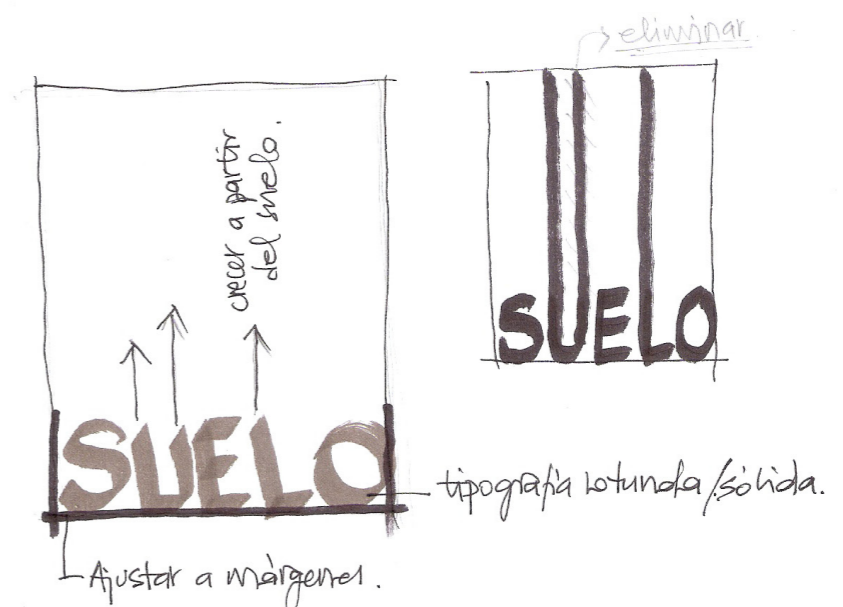 eliminar
crecer a partir
del suelo.
SUELO
SUELO
tipografía rotunda/sólida.
Ajustar a márgenes.